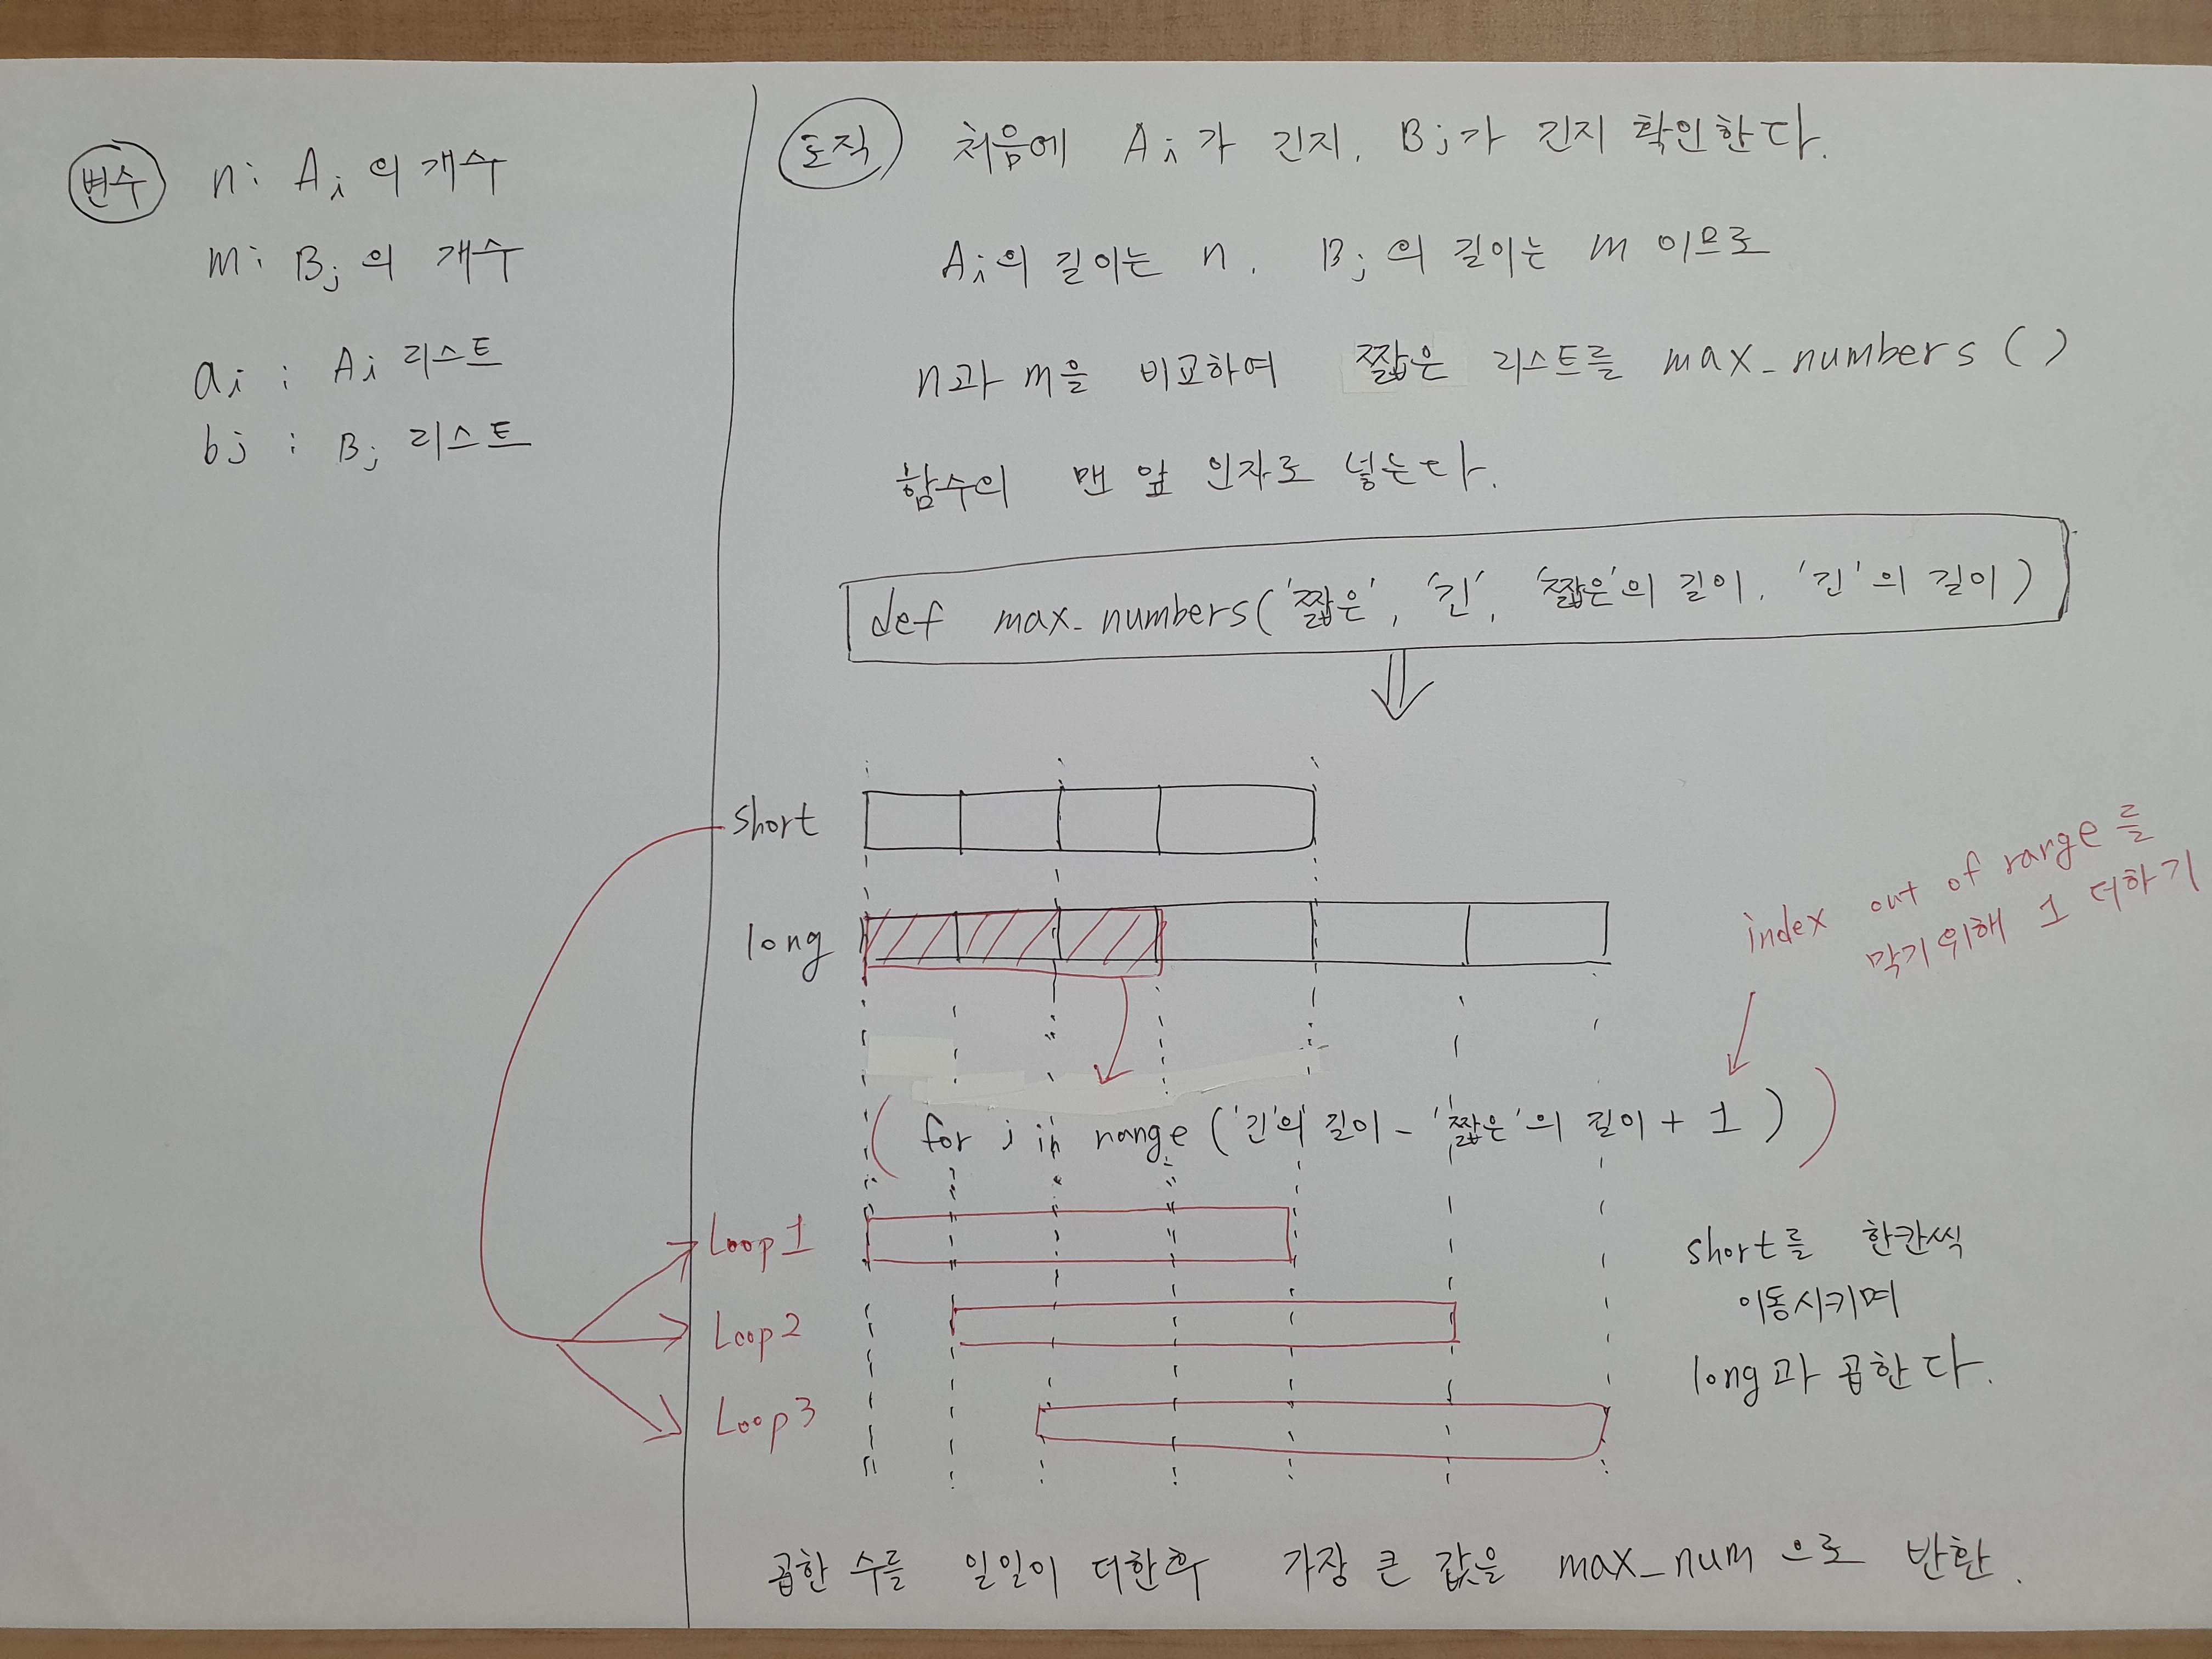 변수
n: Ai의 개수
m: Bj의 개수
ai : Ai 리스트
bj : Bj 리스트
로직
처음에 Ai가 긴지, Bj가 긴지 확인한다.
Ai의 길이는 n, Bj의 길이는 m 이므로
n과 m을 비교하여 짧은 리스트를 max_numbers()
함수의 맨 앞 인자로 넣는다.
def max_numbers('짧은', '긴', '짧은'의 길이, '긴'의 길이)
short
long
index out of range를
막기위해 1 더하기
(for j in range('긴'의 길이 - '짧은'의 길이 + 1))
Loop1
Loop2
Loop3
short를 한칸씩
이동시키며
long과 곱한다.
곱한 수를 일일이 더한후 가장 큰 값을 max_num으로 반환.